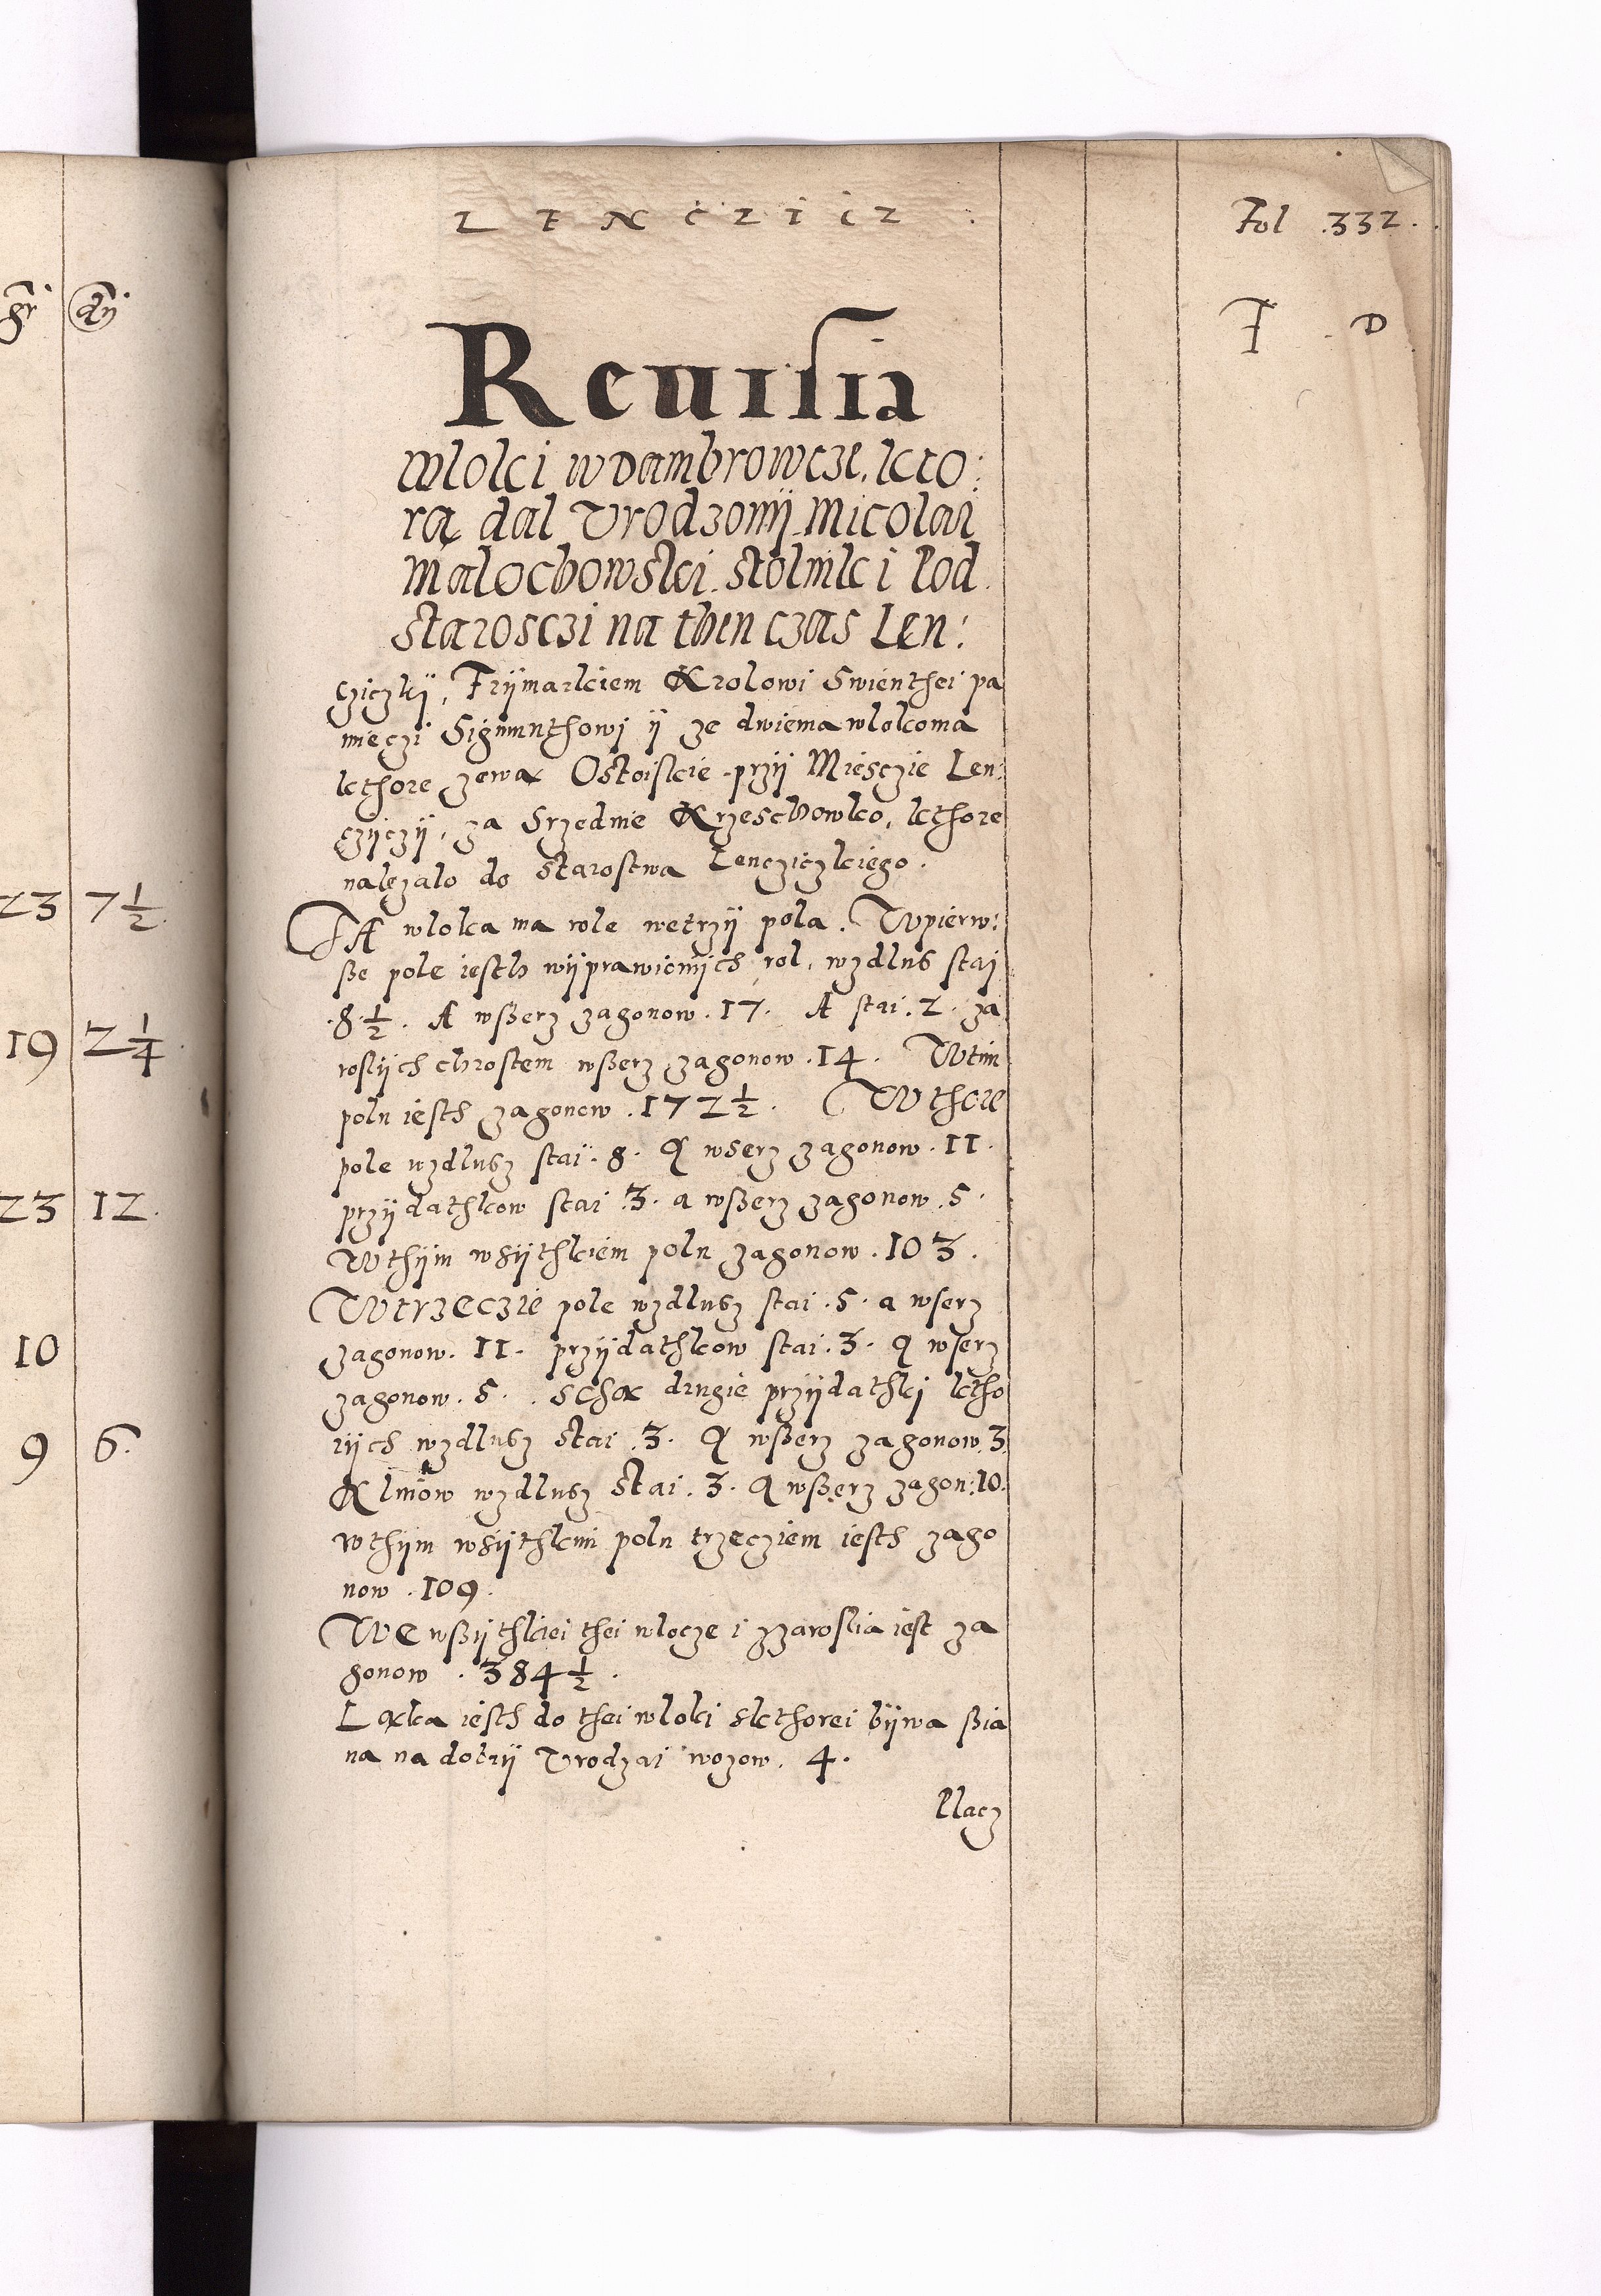 LENCZICZ
Fol .332.
F D
gr
23 7 1/2.
19 2 1/4.
23 12.
10
9 6.
Reuisia
wloki wdambrowcze, kto:
rą dal Vrodzonÿ Micolai
Malochowski. Stolnik i Pod
starosczi na then czas Len:
cziczkÿ, Frÿmarkiem Krolowi Swienthei pa
mięczi Sigmunthowi ÿ ze dwiema wlokoma
kthore zewą Ostoiskie przÿ Miesczie Len:
czÿczÿ, za Srzednie Krzeschowko, kthore
należalo do Starostwa Lencziczkiego.
TA wloka ma role wetrzÿ pola. Wpierw:
ße pole iesth wÿprawionÿch rol, wzdlus staj
.8. 1/2. A wßerz zagonow .17. A stai .2. za
roslÿch chrostem wßerz zagonow .14. Wtim
polu iesth zagonow .172 1/2. Wthore
pole wzdlusz stai .8. A wserz zagonow .11.
przÿdathkow stai .3. a wßerz zagonow .5.
Wthÿm wsÿthkiem polu zagonow .103.
Wtrzeczie pole wzdlusz stai .5. a wserz
zagonow .11. przÿdathkow stai .3. A wserz
zagonow .5. . Schą drugie przÿdathki ktho
rÿch wzdlusz stai .3. A wßerz zagonow .3.
Klinow wzdlusz stai .3. A wßerz zagon: .10.
wthÿm wsÿthkim polu trzecziem iesth zago
now .109.
WE wßÿthkiei thei wlocze i zzaroslia iest za
gonow .384 1/2.
Ląka iesth do thei wloki skthorei bÿwa ßia
na na dobrÿ Vrodzai wozow .4.
Placz